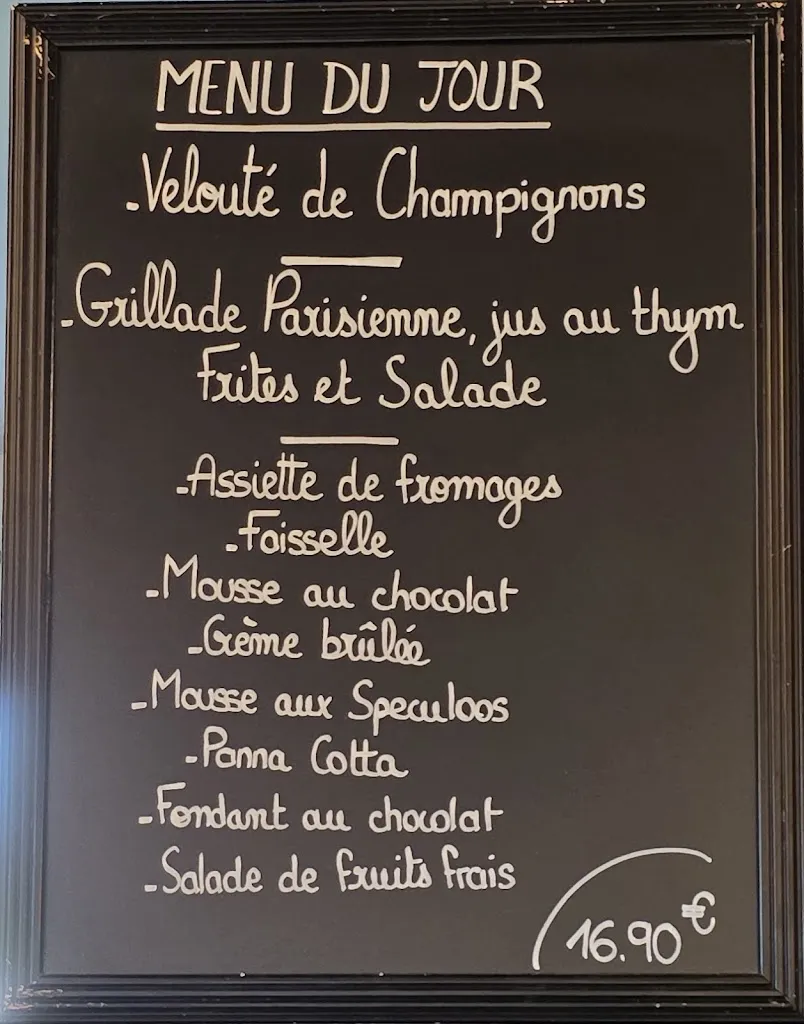 MENU DU JOUR
-Velouté de Champignons
-Grillade Parisienne, jus au thym
Frites et Salade
-Assiette de fromages
-Faisselle
-Mousse au chocolat
-Crème brûlée
-Mousse aux Speculoos
-Panna Cotta
-Fondant au chocolat
-Salade de fruits frais
16.90€